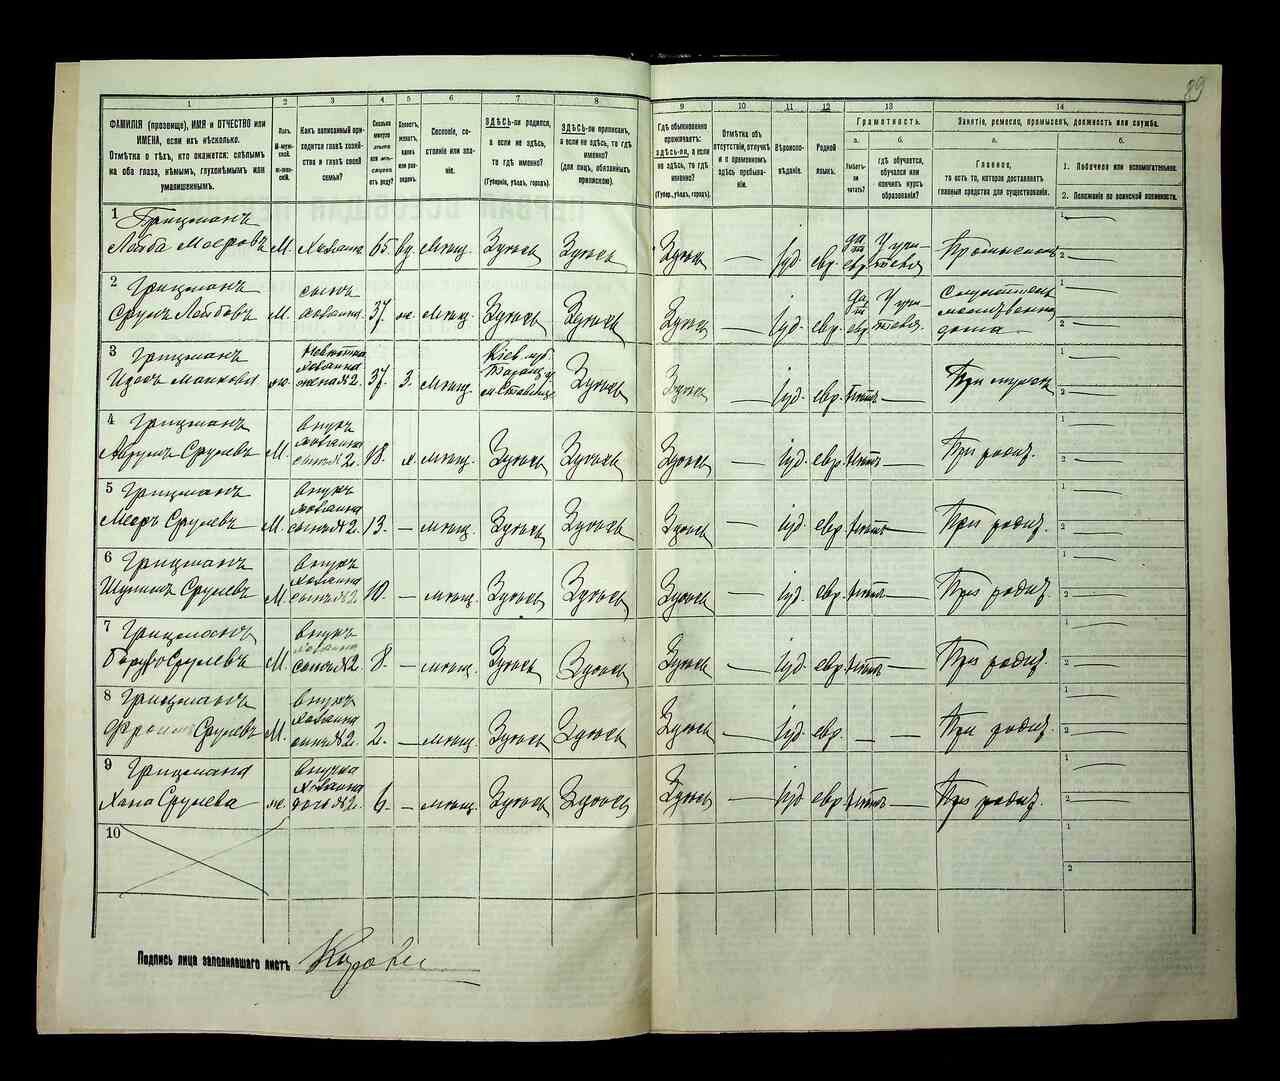 29
1 2 3 4 5 6 7 8 9 10 11 12 13 14
ФАМИЛІЯ (прозвище), ИМЯ и ОТЧЕСТВО или
ИМЕНА, если ихъ нѣсколько.
Отмѣтка о тѣхъ, кто окажется: слѣпымъ
на оба глаза, нѣмымъ, глухонѣмымъ или
умалишеннымъ.
Полъ.
М-муж-
ской.
Ж-жен-
скій.
Какъ записанный при-
ходится главѣ хозяй-
ства и главѣ своей
семьи?
Сколько
минуло
лѣтъ
или мѣ-
сяцевъ
отъ роду?
Холостъ,
женатъ,
вдовъ
или раз-
веденъ.
Сословіе, со-
стояніе или зва-
ніе.
ЗДѢСЬ-ли родился,
а если не здѣсь,
то гдѣ именно?
(Губернія, уѣздъ, городъ).
ЗДѢСЬ-ли приписанъ,
а если не здѣсь, то гдѣ
именно?
(для лицъ, обязанныхъ
припискою).
Гдѣ обыкновенно
проживаетъ:
здѣсь-ли, а если
не здѣсь, то гдѣ
именно?
(Губер., уѣздъ, городъ).
Отмѣтка объ
отсутствіи, отлучкѣ
и о временномъ
здѣсь пребыва-
ніи.
Вѣроиспо-
вѣданіе.
Родной
языкъ.
Грамотность.
а. б.
Умѣетъ-
ли
читать?
гдѣ обучается,
обучался или
кончилъ курсъ
образованія?
Занятіе, ремесло, промыселъ, должность или служба.
а. б.
Главное,
то есть то, которое доставляетъ
главныя средства для существованія.
1. Побочное или вспомогательное.
2. Положеніе по воинской повинности.
1 Грицманъ
Лейба Мееровъ М. Хозяинъ 65 вд. Мѣщ. Здѣсь Здѣсь Здѣсь — Іуд. евр. да евр. У учителя 1 — 2 —
2 Грицманъ
Сруль Лейбовъ М. сынъ хозяина 37 ж. Мѣщ. Здѣсь Здѣсь Здѣсь — Іуд. евр. да евр. У учителя 1 — 2 —
3 Грицманъ
ж. Невѣстка хозяина жена №2. 37 з. Мѣщ. Кіев. губ. Таращ. у. м. Ставище Здѣсь Здѣсь — Іуд. евр. нѣтъ — При мужѣ 1 — 2 —
4 Грицманъ
Аврумъ Срулевъ М. внукъ хозяина сынъ №2. 18. х. мѣщ. Здѣсь Здѣсь Здѣсь — Іуд. евр. нѣтъ — При родит. 1 — 2 —
5 Грицманъ
Мееръ Срулевъ М. внукъ хозяина сынъ №2. 13. — мѣщ. Здѣсь Здѣсь Здѣсь — Іуд. евр. нѣтъ — При родит. 1 — 2 —
6 Грицманъ
Срулевъ М. внукъ хозяина сынъ №2. 10. — мѣщ. Здѣсь Здѣсь Здѣсь — Іуд. евр. нѣтъ — При родит. 1 — 2 —
7 Грицманъ
Борухъ Срулевъ М. внукъ хозяина сынъ №2. 8. — мѣщ. Здѣсь Здѣсь Здѣсь — Іуд. евр. нѣтъ — При родит. 1 — 2 —
8 Грицманъ
Фроимъ Срулевъ М. внукъ хозяина сынъ №2. 2. — мѣщ. Здѣсь Здѣсь Здѣсь — Іуд. евр. — — При родит. 1 — 2 —
9 Грицмана
Хана Срулева ж. внучка хозяина дочь №2. 6 — мѣщ. Здѣсь Здѣсь Здѣсь — Іуд. евр. нѣтъ — При родит. 1 — 2 —
10 1 2
Подпись лица заполнявшаго листъ